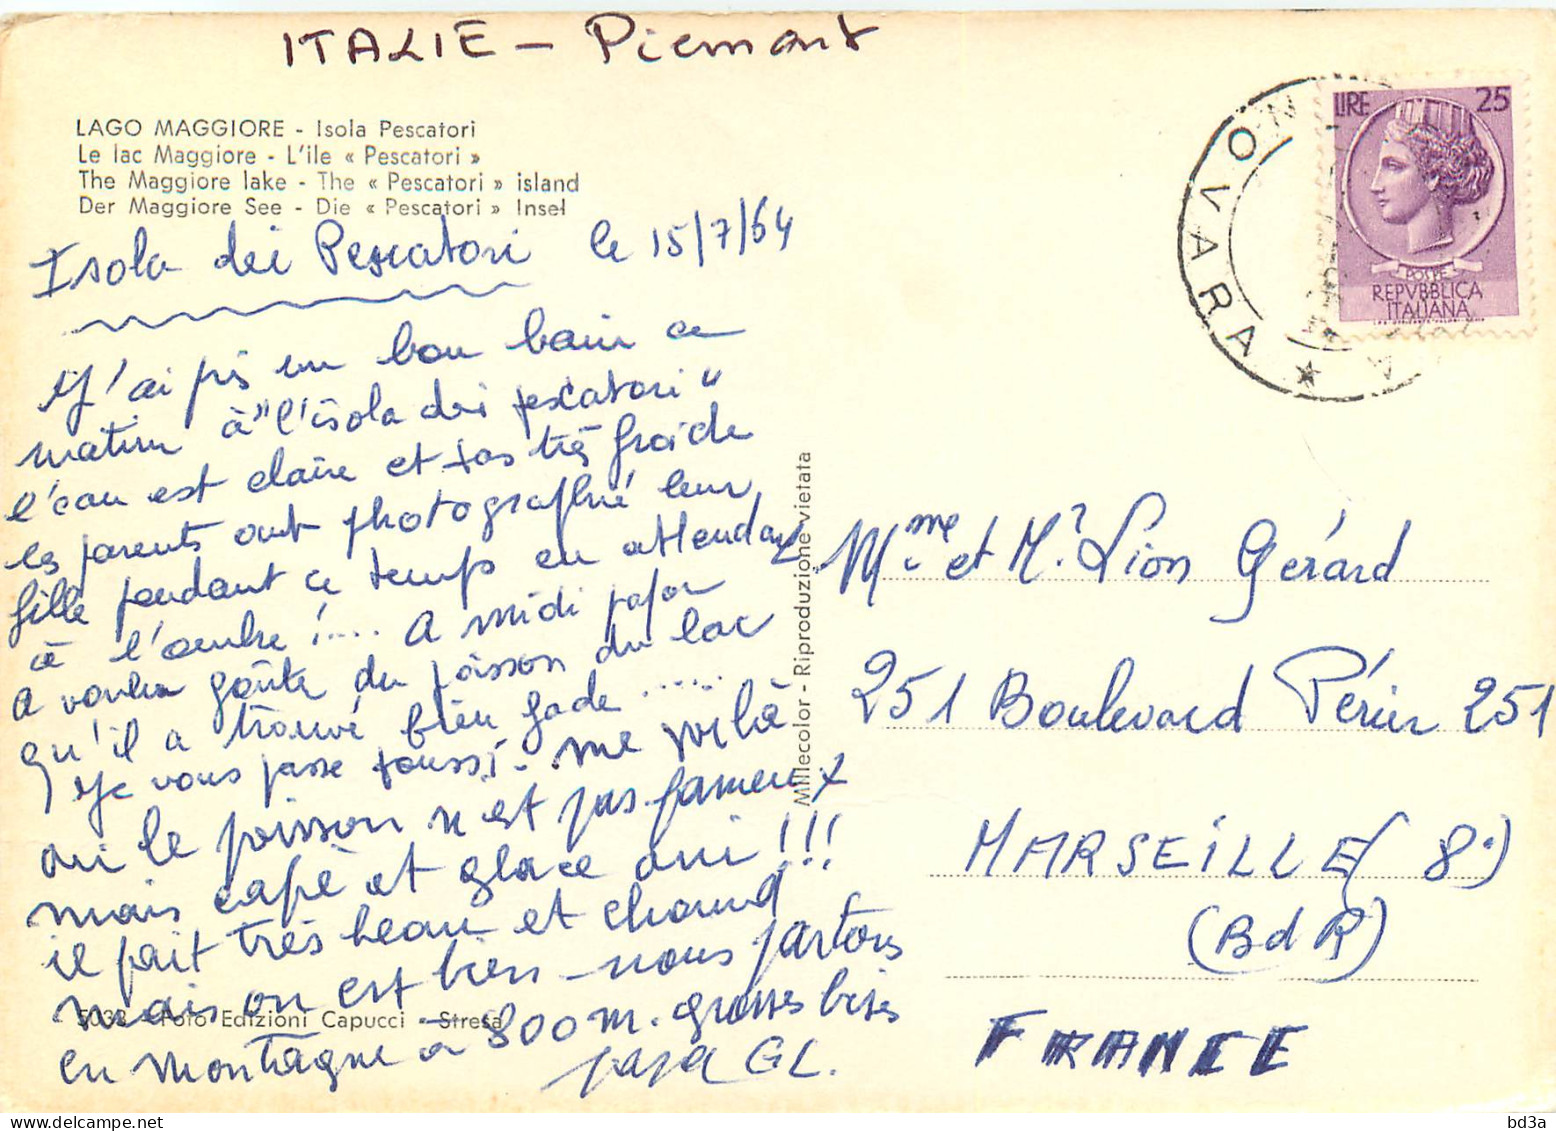 ITALIE - Piemont
LAGO MAGGIORE - Isola Pescatori
Le lac Maggiore - L'ile « Pescatori »
The Maggiore lake - The « Pescatori » island
Der Maggiore See - Die « Pescatori » Insel
Isola dei Pescatori le 15/7/64
J'ai pris un bon bain ce
matin à "l'isola dei pescatori"
l'eau est claire et pas très froide
les parents ont photographié leur
fille pendant ce temps en attendant
à l'ombre !.... A midi papa
a voulu goûter du poisson du lac
qu'il a trouvé bien fade ......
Je vous passe ... me voilà
oui le poisson n'est pas fameux
mais café et glace oui !!!
il fait très beau et chaud
mais on est bien - nous partons
en montagne à 800 m. grosses bises
papa GL.
5038 - Foto Edizioni Capucci - Stresa
Millecolor - Riproduzione vietata
NOVARA
LIRE 25
POSTE
REPVBBLICA
ITALIANA
Mme et Mr Lion Gérard
251 Boulevard Périer 251
MARSEILLE (8°)
(BdR)
FRANCE
bd3a